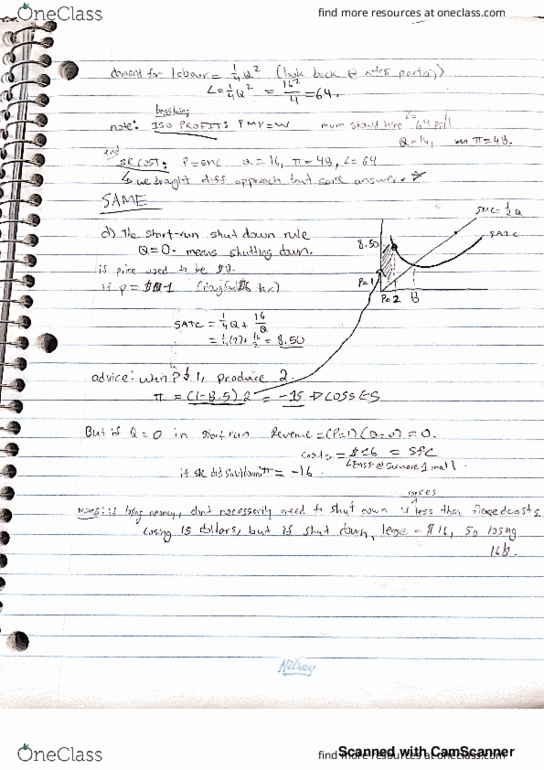 OneClass
find more resources at oneclass.com
demand for labour = 1/4 Q² (look back @ notes
L = 1/4 Q² = 16²/4 = 64.
note: ISO PROFITS PMP=W mum should hire L= 64
Q=16, π = 48.
SRCOST: P=SMC Q=16, π=48, L=64
↳ we brought diff approach but same answer.
SAME
d) The short-run shut down rule
Q=0 - means shutting down.
if price used to be $8.
if P = 1
SATC = 1/4 Q + 16/Q
= 1/4(2) + 16/2 = 8.50
8.50
P=1
2
8
SMC = 1/2 Q
SATC
advice: when P ↓ 1, produce 2.
π = (1-8.5)2 = -15 → LOSSES
But if Q=0 in short run Revenue = (P=1)(Q=0) = 0.
costs = $16 = SFC
if SR did shutdown π = -16.
losses
Notes: if losing money, don't necessarily need to shut down if less than fixed costs.
losing 15 dollars, but if shut down, lease = $16, so losing
16$.
Hilroy
OneClass
find more resources at oneclass.com
Scanned with CamScanner